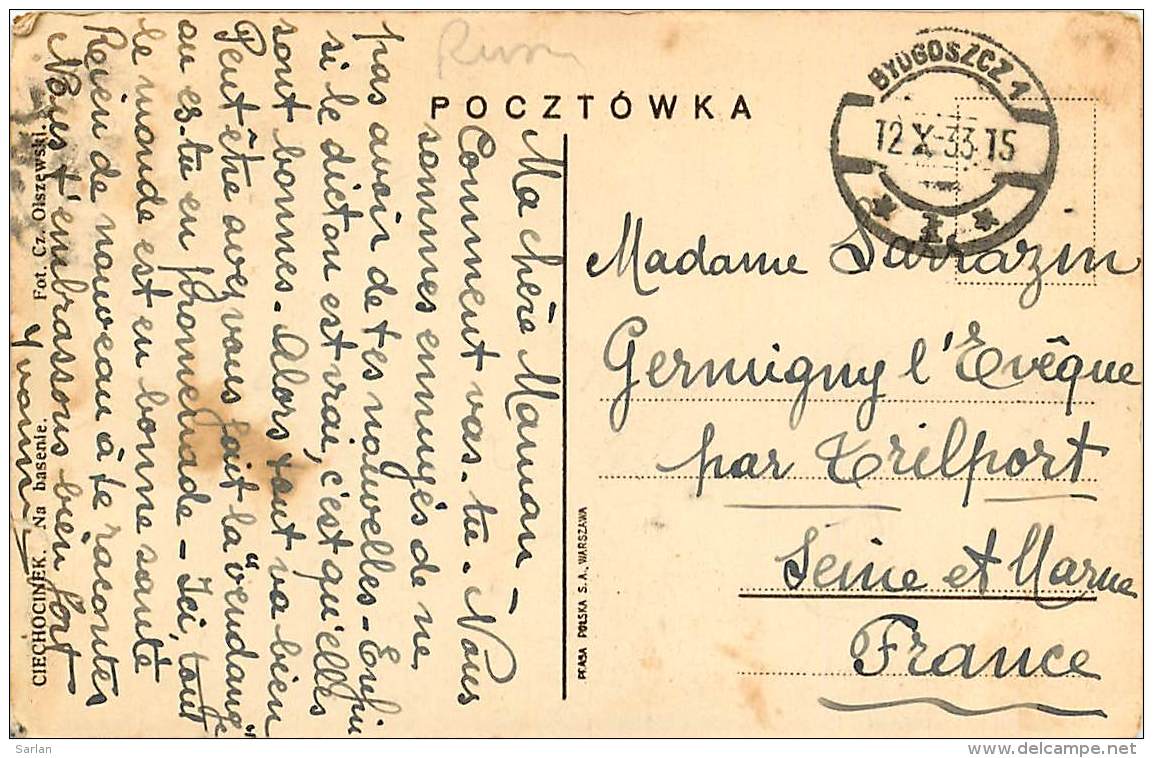 Russ
POCZTÓWKA
BYDGOSZCZ 1
12 X-33.15
* I *
Ma chère Maman -
Comment vas-tu - Nous
sommes ennuyés de ne
pas avoir de tes nouvelles - Enfin
si le dicton est vrai, c'est qu'elles
sont bonnes - Alors tout va bien
Peut être avez vous fait la "vendange"
ou es-tu en promenade - Ici, tout
le monde est en bonne santé
Rien de nouveau à te raconter
Nous t'embrassons bien fort
Yvonne
CIECHOCINEK. Na basenie. Fot. Cz. Olszewski.
PRASA POLSKA S.A., WARSZAWA
Madame Sarrazin
Germigny l'Evêque
par Trilport
Seine et Marne
France
Sarlan
www.delcampe.net